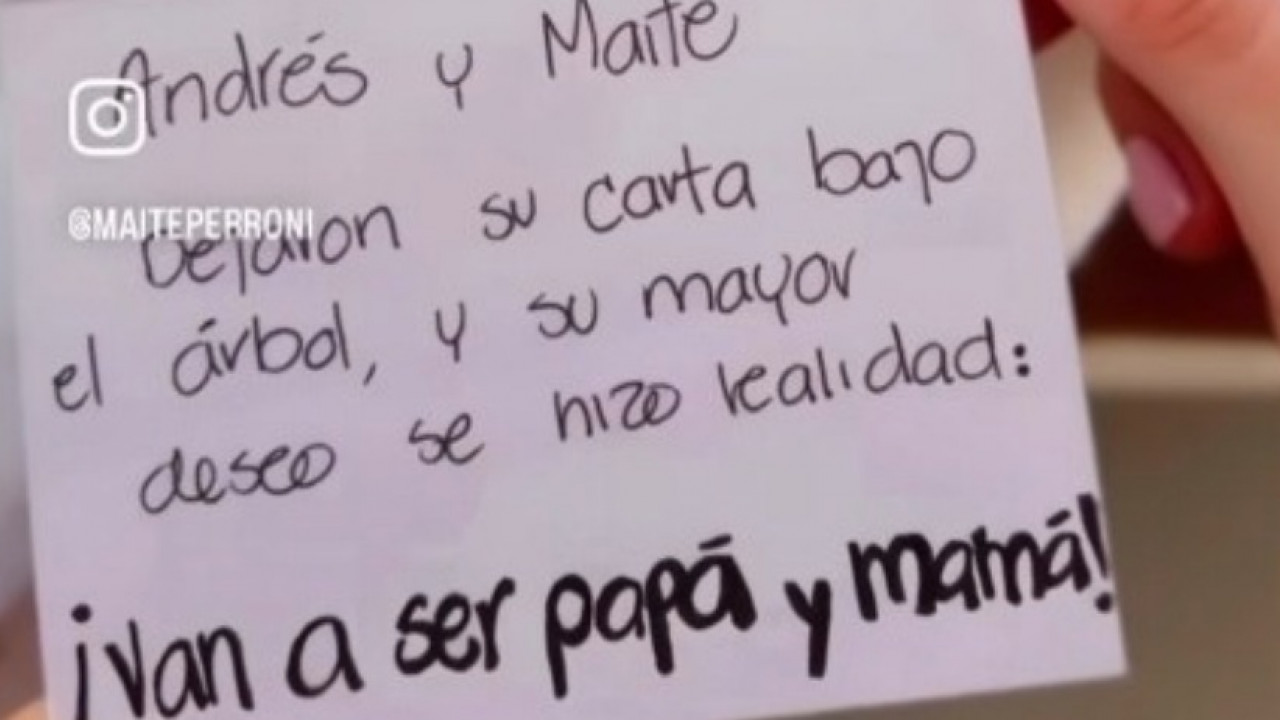 Andrés y Maite
@MAITEPERRONI
Dejaron su carta bajo
el árbol, y su mayor
deseo se hizo realidad:
¡Van a ser papá y mamá!